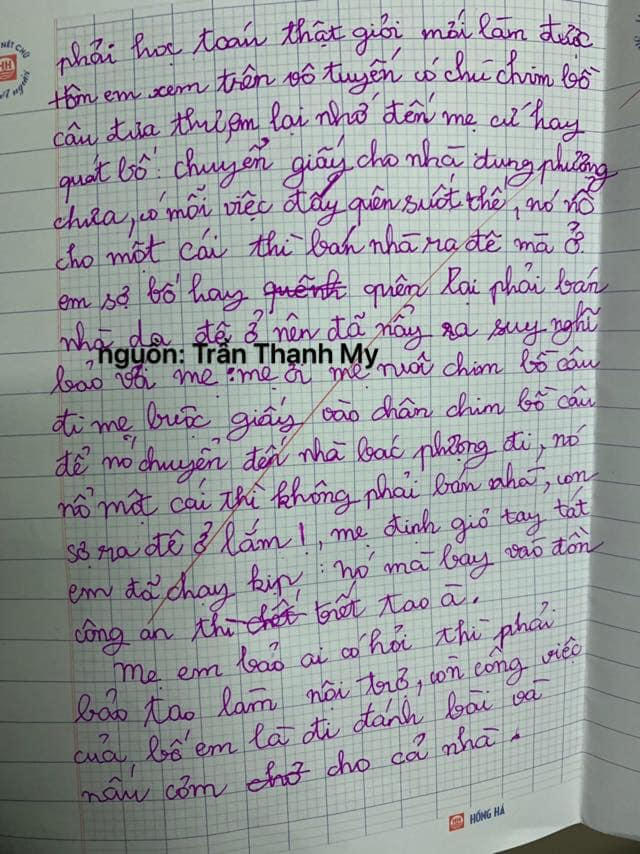 phải học toán thật giỏi mới làm được
tôm em xem trên vô tuyến có chú chim bồ
câu đưa thư,em lại nhớ đến mẹ cứ hay
quát bố: chuyển giấy cho nhà dung phượng
chưa, có mỗi việc đấy quên suốt thế, nó nổ
cho một cái thì bán nhà ra đê mà ở.
em sợ bố hay quên lại phải bán
nhà da đê ở nên đã nảy ra suy nghĩ
nguồn: Trần Thanh My
bảo với mẹ: mẹ ơi mẹ nuôi chim bồ câu
đi mẹ buộc giấy vào chân chim bồ câu
để nó chuyển đến nhà bác phượng đi, nó
nổ một cái thì không phải bán nhà, con
sợ ra đê ở lắm!, mẹ định giơ tay tát
em đã chạy kịp: nó mà bay vào đồn
công an thì chết trết tao à.
Mẹ em bảo ai có hỏi thì phải
bảo tao làm nôi trở, còn công việc
của, bố em là đi đánh bài và
nấu cơm cho cả nhà.
HỒNG HÀ